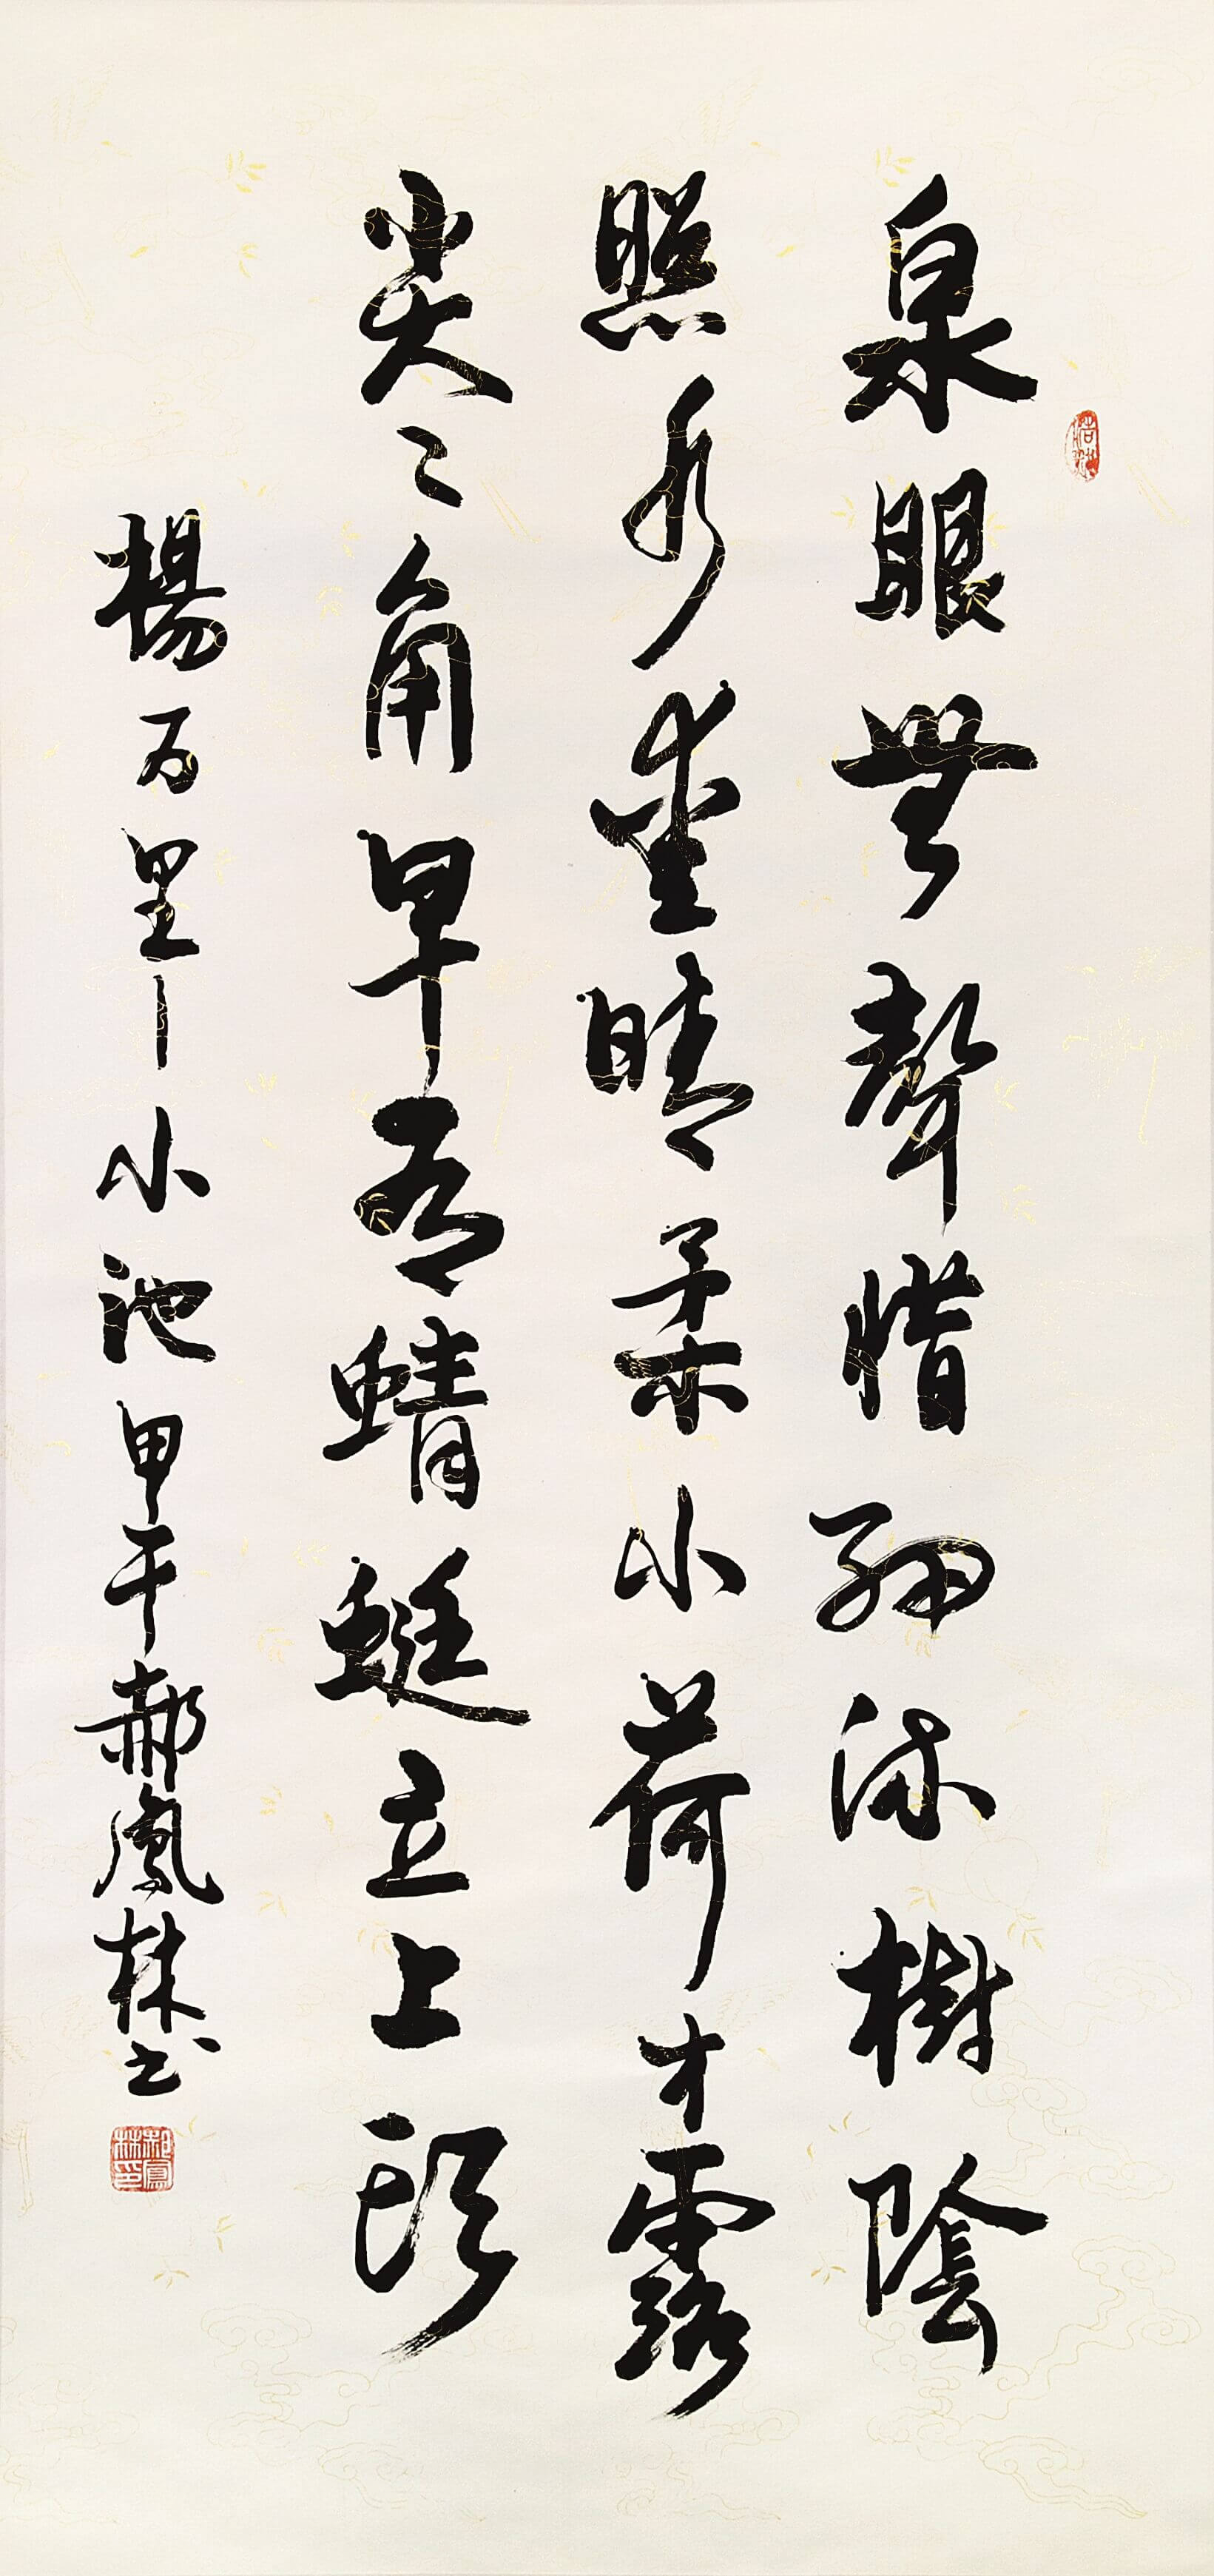 泉眼無聲惜細流樹陰
照水愛晴柔小荷才露
尖〻角早有蜻蜓立上頭
楊万里丨小池甲午郝鳳林书
郝鳳林印